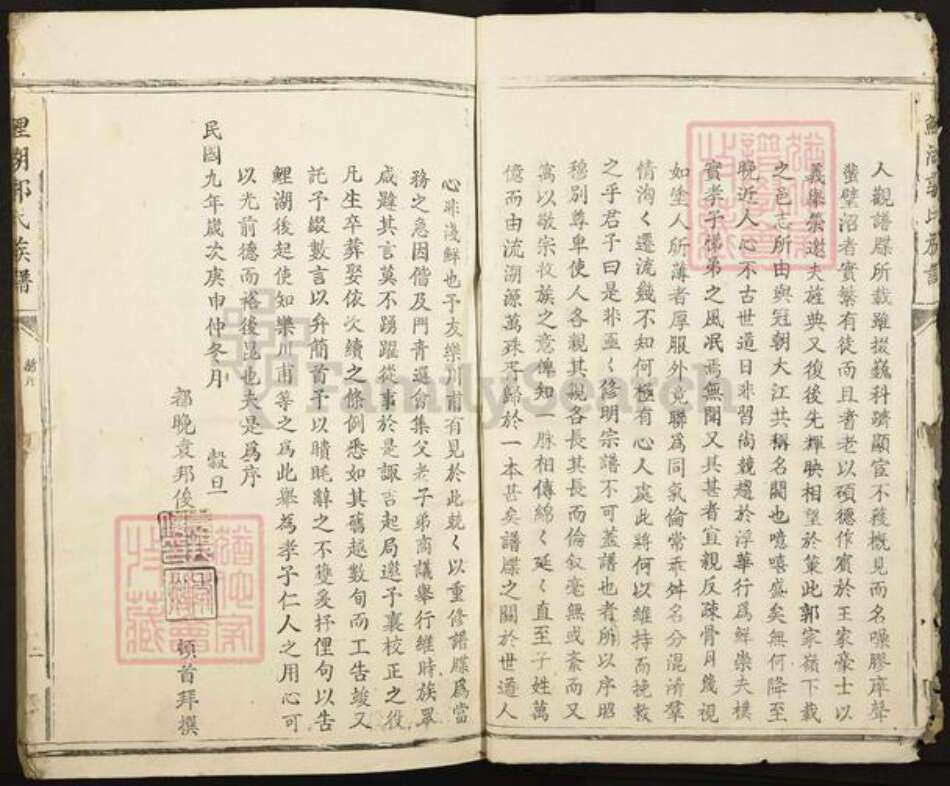 人觀譜牒所載雖掇巍科躋顯宦不獲概見而名噪膠庠聲
蜚璧沼者實繁有徒而且耆老以碩德作賓於王家豪士以
義舉榮邀夫旌典又復後先輝映相望於策此郭家嶺下載
之邑志所由與冠朝大江共稱名閥也噫嘻盛矣無何降至
晚近人心不古世道日非習尚競趨於浮華行為鮮崇夫樸
實孝子悌弟之風泯焉無聞又其甚者宜親反疎骨肉幾視
如塗人所薄者厚服外竟聯為同氣倫常乖舛名分混淆羣
情沟く遷流幾不知何極有心人處此將何以維持而挽救
之乎君子曰是非亟く修明宗譜不可蓋譜也者所以序昭
穆別尊卑使人各親其親各長其長而倫叙毫無或紊而又
寓以敬宗收族之意俾知一脉相傳綿く延く直至子姓萬
億而由流溯源萬殊乎歸於一本甚矣譜牒之關於世道人
心非淺鮮也予友樂川甫有見於此兢く以重修譜牒為當
務之急因偕及門青選合集父老子弟商議舉行維時族眾
咸韙其言莫不踴躍從事於是諏吉起局邀予襄校正之役
凡生卒葬娶依次續之條例悉如其舊越數旬而工告竣又
託予綴數言以弁簡首予以瞶眊辭之不獲爰抒俚句以告
鯉湖後起使知樂川甫等之為此舉為孝子仁人之用心可
以光前德而裕後昆也夫是為序
民國九年歲次庚申仲冬月 穀旦
都晚袁邦俊 頓首拜撰
鯉湖郭氏族譜
二
FamilySearch